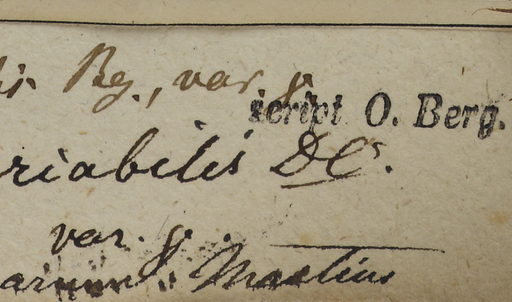 Bg., var. γ.
script O. Berg.
riabilis DC.
var. γ.
arum. Martius